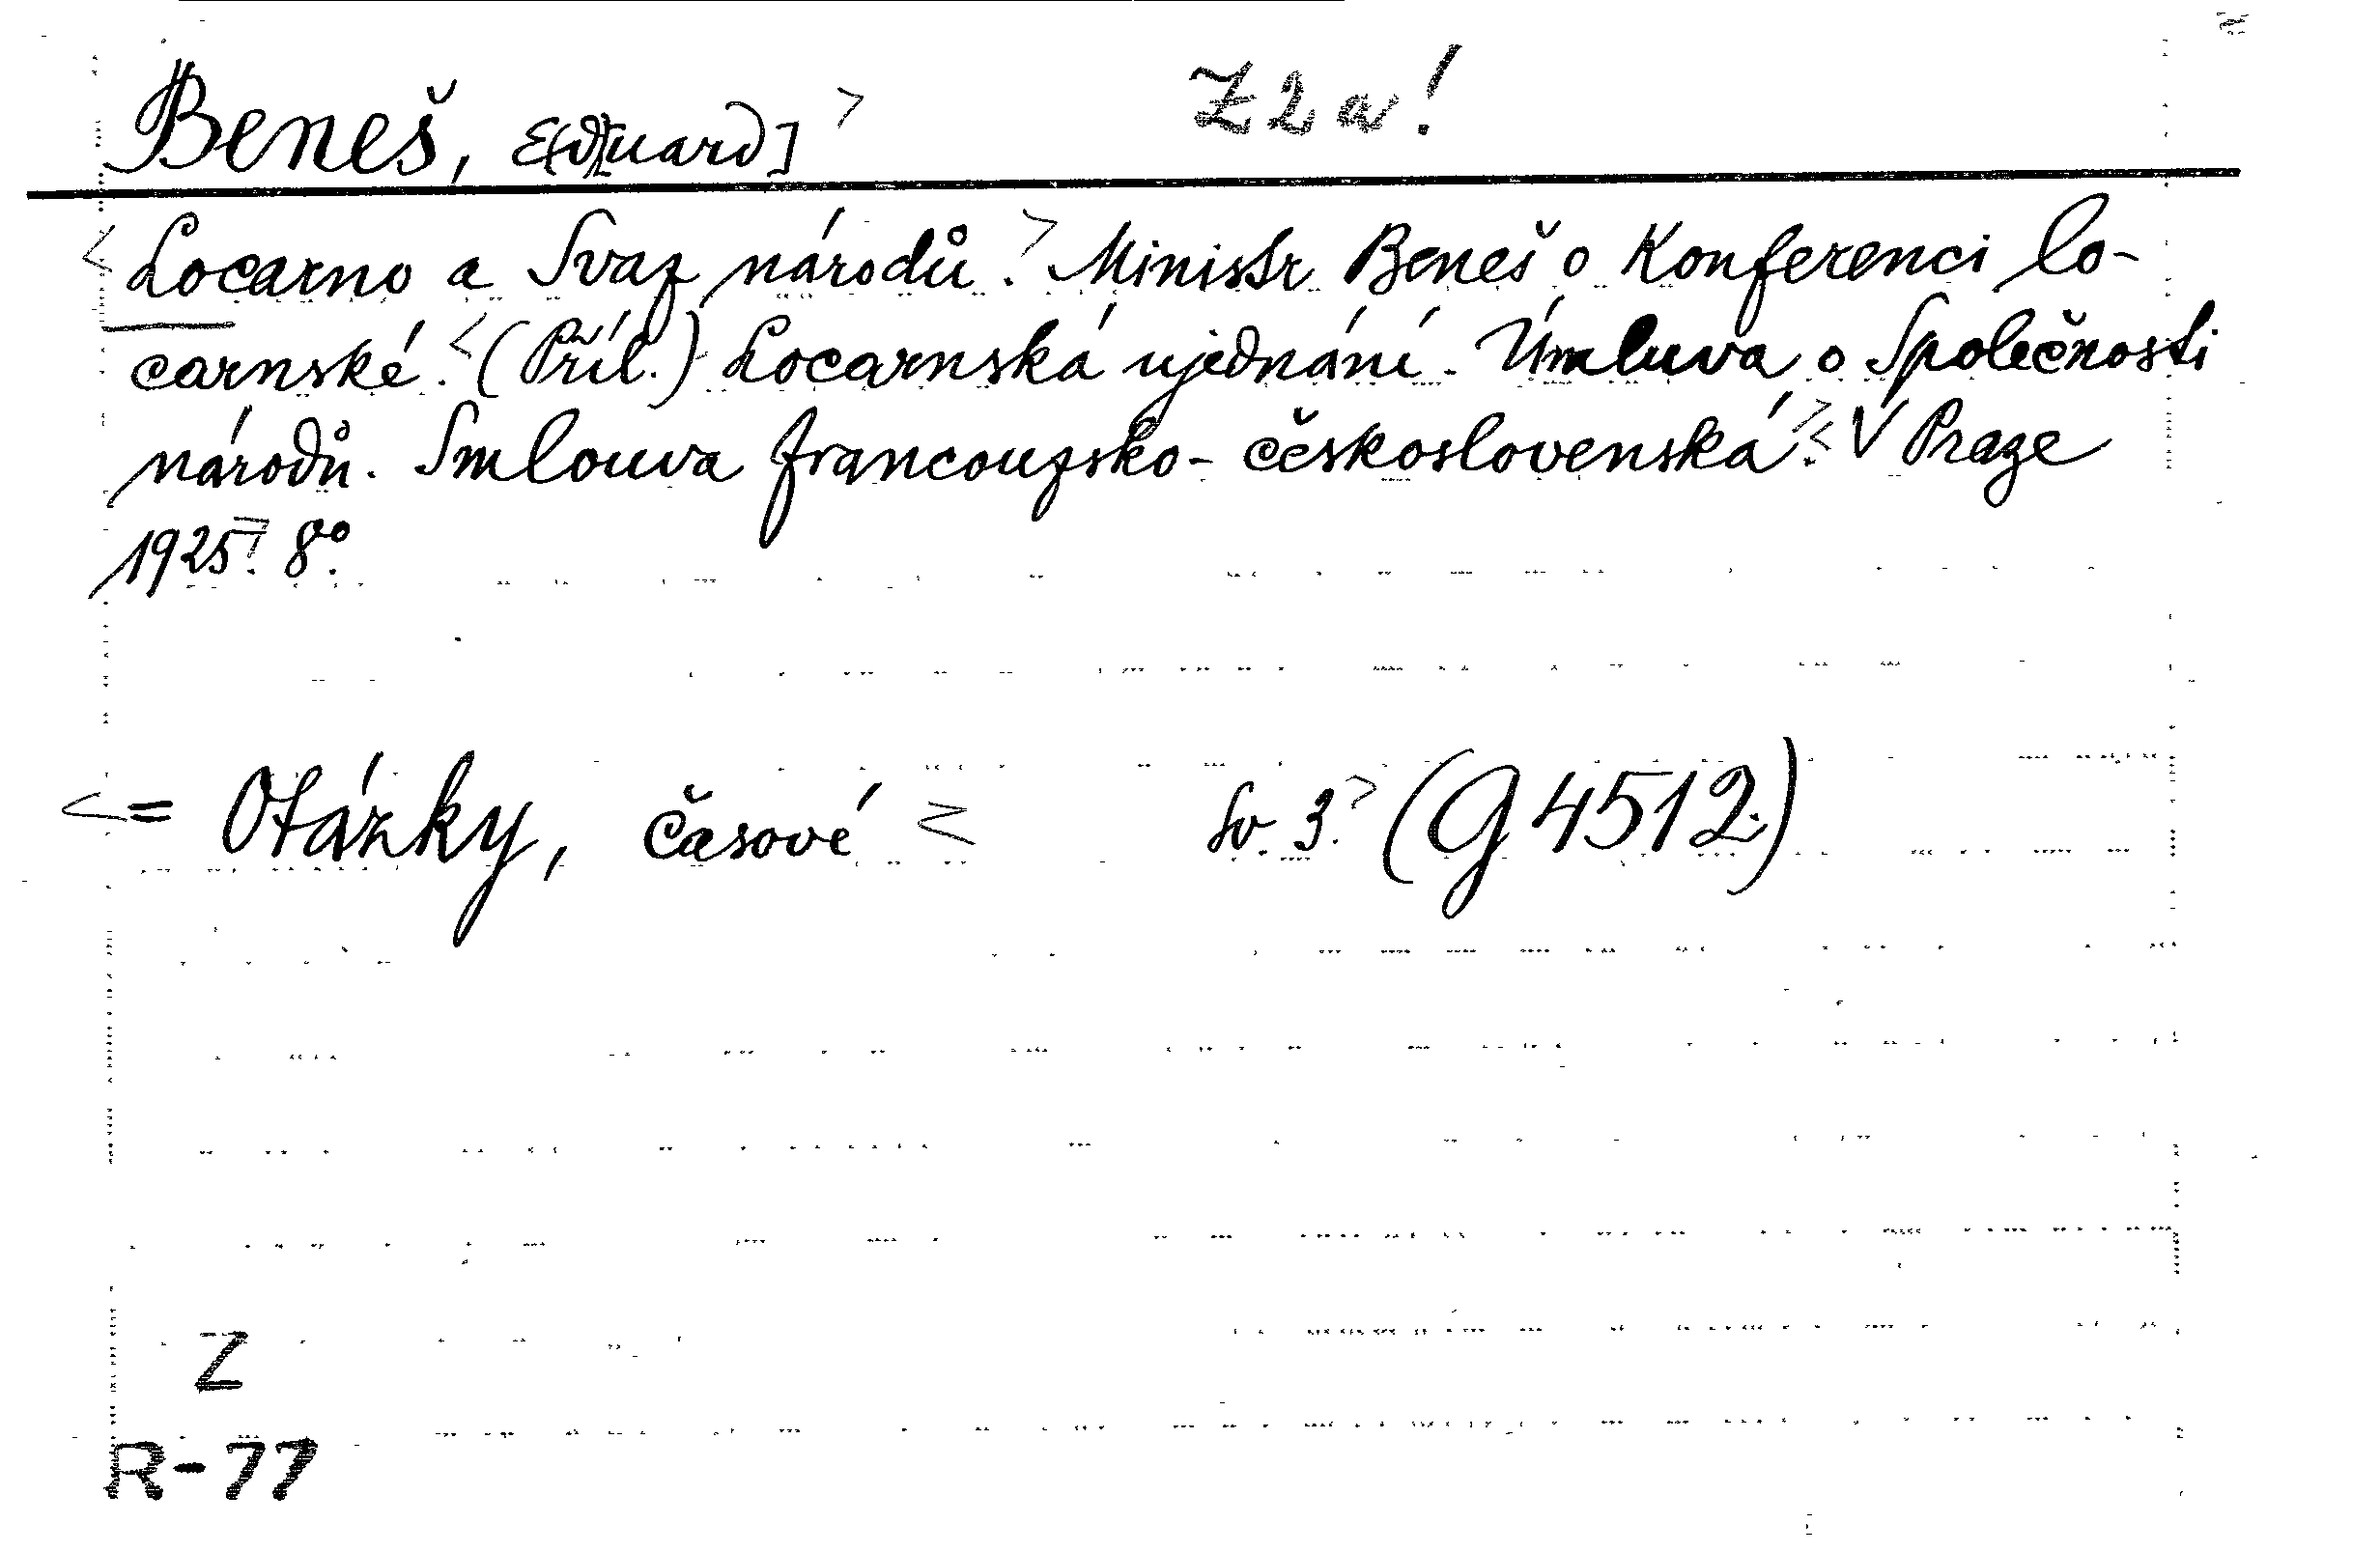 Beneš, E(d)[uard] > Z 2 a!
< Locarno a Svaz národů. > Ministr Beneš o Konferenci lo-
carnské. < (Příl.) Locarnská ujednání. Úmluva o Společnosti
národů. Smlouva francouzsko-československá. > < V Praze
1925. 8°.
< = Otázky, časové < Sv. 3. > (G 4512.)
Z
R-77